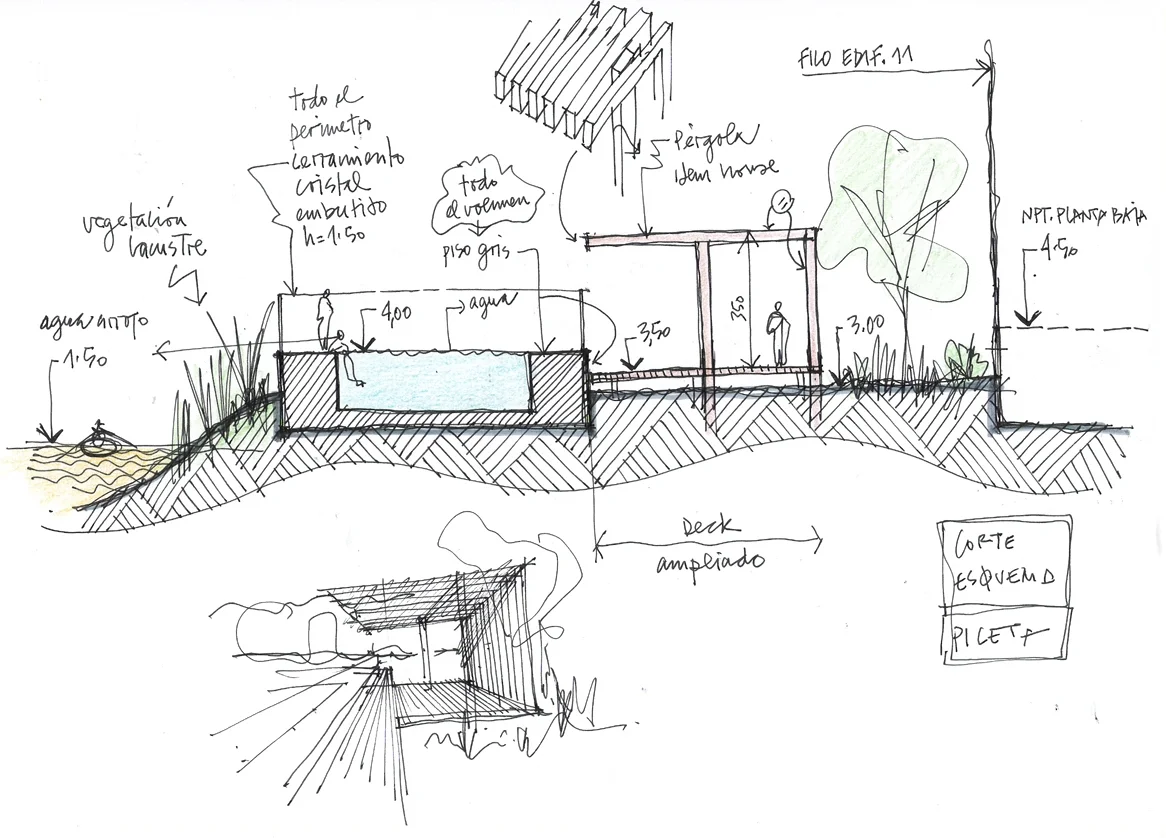 FILO EDIF. 11
todo el
perimetro
cerramiento
cristal
embutido
h=1.50
Pérgola
idem house
todo
el volumen
piso gris
vegetación
lacustre
NPT. PLANTA BAJA
4.50
agua arroyo
1.50
4,00
agua
3,50
350
3.00
Deck
ampliado
CORTE
ESQUEMA
PILETA